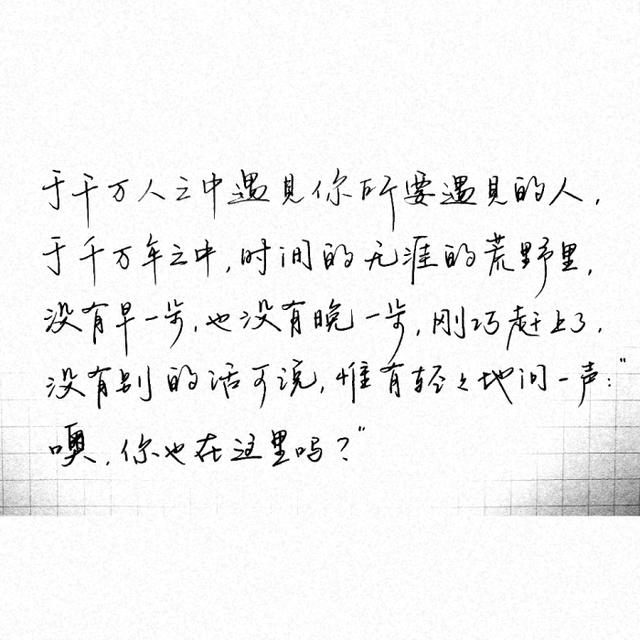 于千万人之中遇见你所要遇见的人，
于千万年之中，时间的无涯的荒野里，
没有早一步，也没有晚一步，刚巧赶上了，
没有别的话可说，惟有轻々地问一声：“
噢，你也在这里吗？”